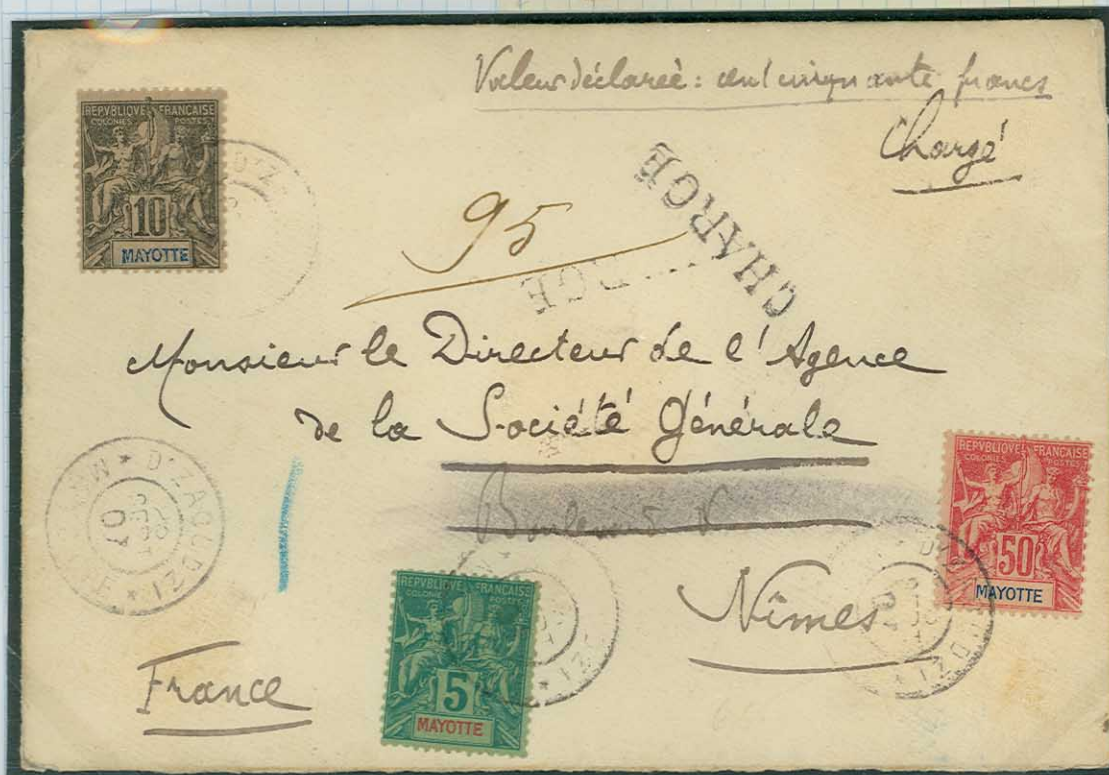 Valeur déclarée: cent cinquante francs
Chargé
REPVBLIQVE FRANÇAISE
COLONIES POSTES
10
MAYOTTE
CHARGE
95
RGE
Monsieur le Directeur de l'Agence
de la Société Générale
Boulevard
REPVBLIQVE FRANÇAISE
COLONIES POSTES
50
MAYOTTE
D'ZAOUDZI
SEPT
07
Nîmes
REPVBLIQVE FRANÇAISE
COLONIES POSTES
5
MAYOTTE
France